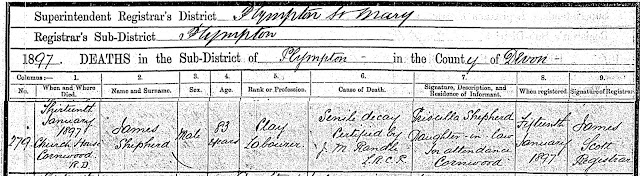 Superintendent Registrar's District Plympton St Mary
Registrar's Sub-District Plympton
1897. DEATHS in the Sub-District of Plympton in the County of Devon
Columns:— 1. 2. 3. 4. 5. 6. 7. 8. 9.
No. When and Where Died. Name and Surname. Sex. Age. Rank or Profession. Cause of Death. Signature, Description, and Residence of Informant. When registered. Signature of Registrar
279
Thirteenth
January
1897
Church House
Cornwood
R.D.
James
Shepherd
Male
83
years
Clay
Labourer
Senile decay
Certified by
J. M. Randle
L.R.C.P.
Priscilla Shepherd
Daughter-in-law
In attendance
Cornwood
Fifteenth
January
1897
James
Scott
Registrar